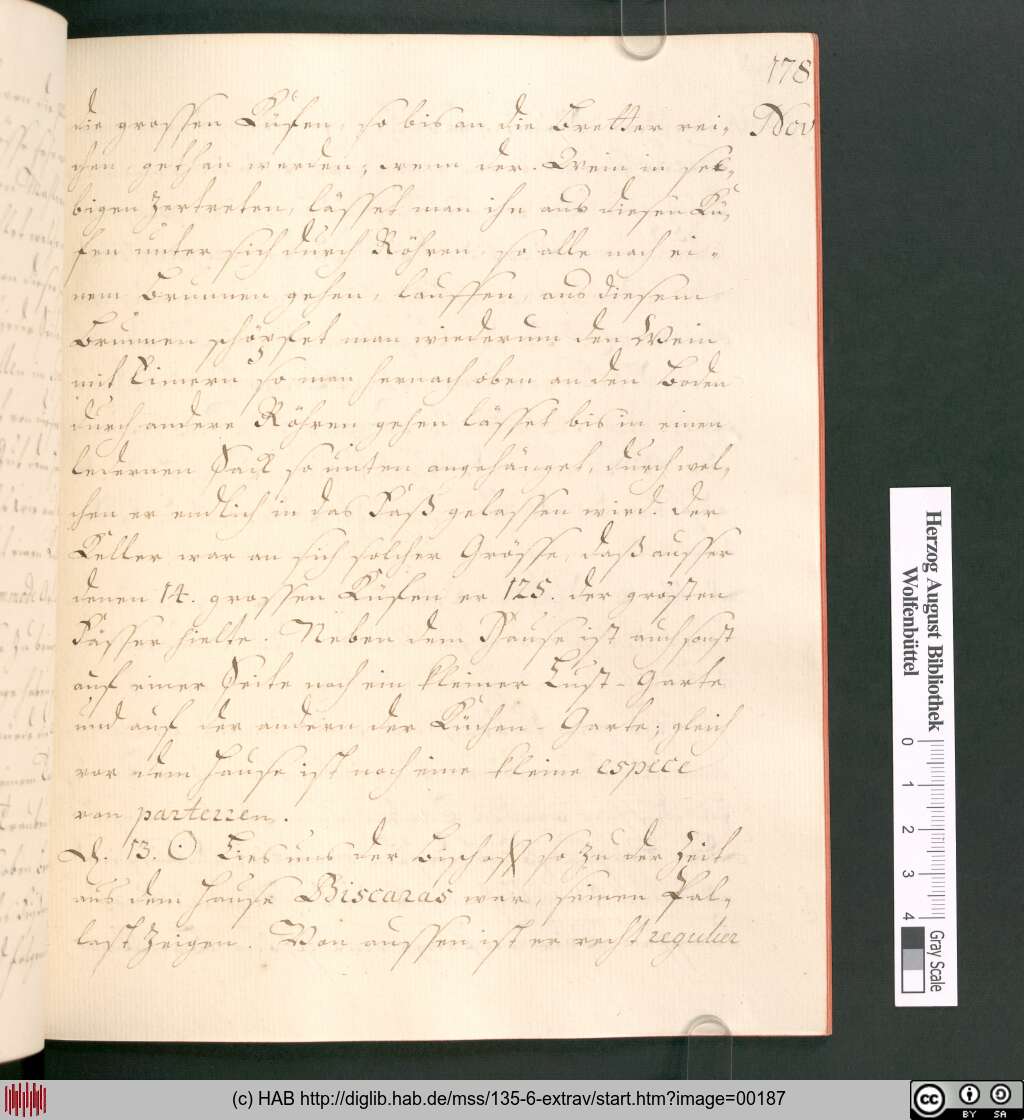 178
Nov
die grossen Küfen, so bis an die Bretter rei-
chen, gethan werden, wenn der Wein in sel-
bigen zertreten, lässet man ihn aus diesen Kü-
fen unter sich durch Röhren, so alle nach ei-
nem Brunnen gehen, lauffen, aus diesem
Brunnen schöpfet man wiederum den Wein
mit Eimern so man hernach oben an den Boden
durch andere Röhren gehen lässet bis in einen
ledernen Sack so unten angehänget, durch wel-
chen er endlich in das Faß gelassen wird. der
Keller war an sich solcher Grösse, daß ausser
denen 14. grossen Küfen er 125. der grösten
Fässer hielte. Neben dem Hause ist auch sonst
auf einer Seite noch ein kleiner Lust-Garte
und auf der andern der Küchen-Garte; gleich
vor dem Hause ist noch eine kleine espece
von parterren.
D. 13. ☉ Lies uns der Bischoff so zu der Zeit
aus dem Hause Biscaras war, seinen Pal-
last zeigen. Von aussen ist er recht regulier
Herzog August Bibliothek
Wolfenbüttel
0 1 2 3 4
Gray Scale
(c) HAB http://diglib.hab.de/mss/135-6-extrav/start.htm?image=00187
cc BY SA